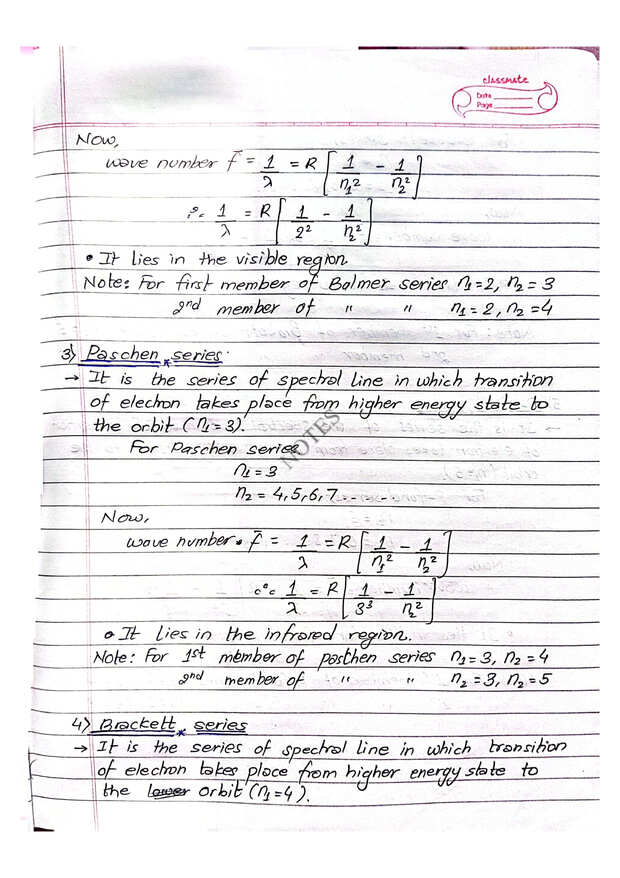 classmate
Date
Page
Now,
wave number f̄ = 1/λ = R [1/n₁² - 1/n₂²]
∴ 1/λ = R [1/2² - 1/n₂²]
• It lies in the visible region.
Note: For first member of Balmer series n₁=2, n₂=3
2nd member of " " n₁=2, n₂=4
3) Paschen series:
→ It is the series of spectral line in which transition
of electron takes place from higher energy state to
the orbit (n₁=3).
NOTES
For Paschen series
n₁=3
n₂ = 4,5,6,7.. . . .
Now,
wave number. f̄ = 1/λ = R [1/n₁² - 1/n₂²]
∴ 1/λ = R [1/3³ - 1/n₂²]
• It lies in the infrared region.
Note: For 1st member of pasthen series n₁=3, n₂=4
2nd member of " " n₂=3, n₂=5
4) Brackett series
→ It is the series of spectral line in which transition
of electron takes place from higher energy state to
the lower orbit (n₁=4).